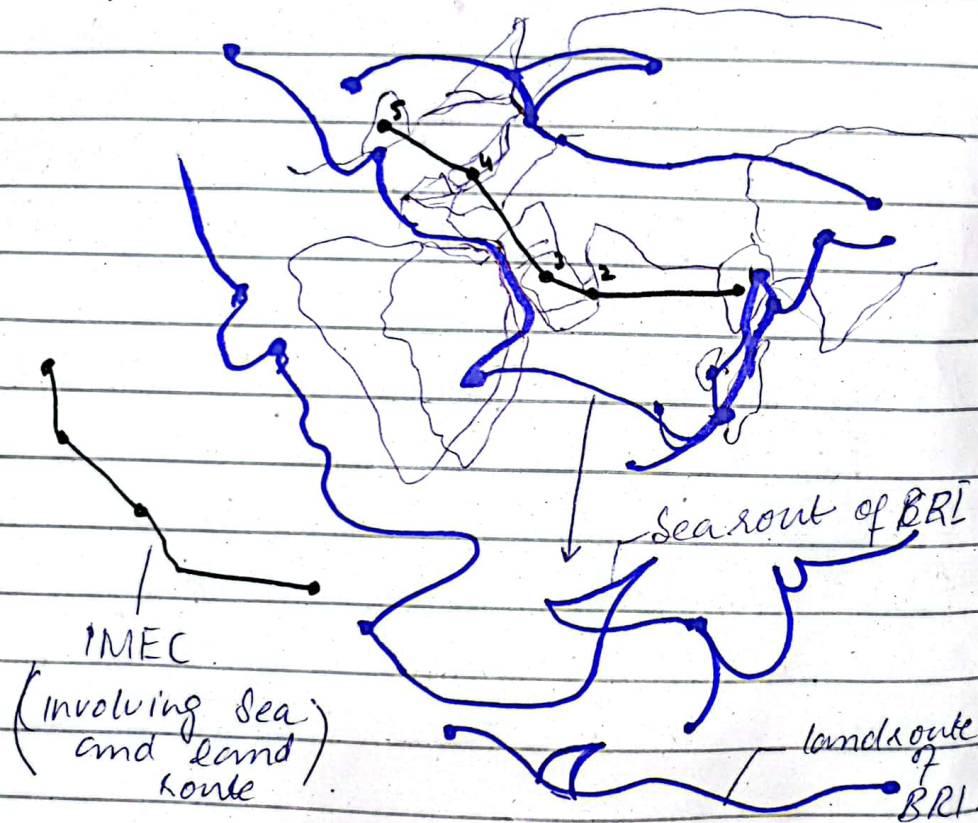 5
4
3
2
1
Sea rout of BRI
IMEC
(involving Sea
and land
route)
landroute
of
BRI